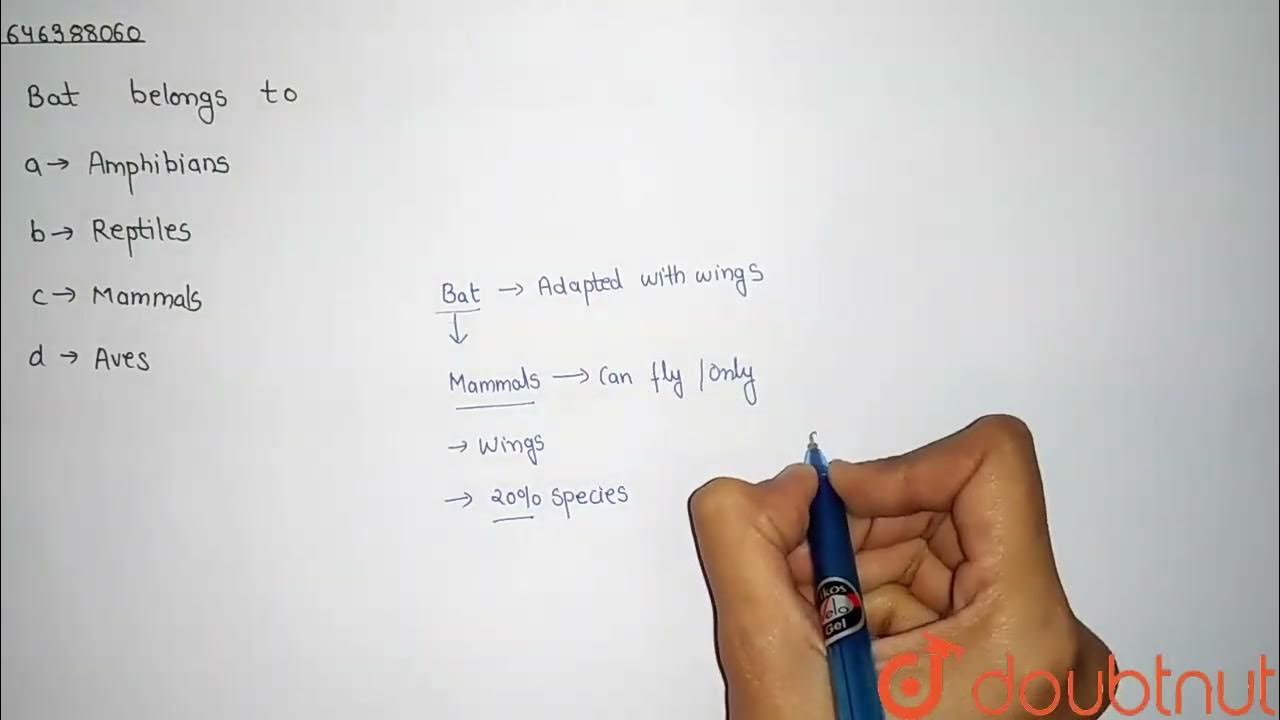 646388060
Bat belongs to
a→ Amphibians
b→ Reptiles
c→ Mammals
d→ Aves
Bat → Adapted with wings
↓
Mammals → Can fly / Only
→ Wings
→ 20% Species
Gel
doubtnut